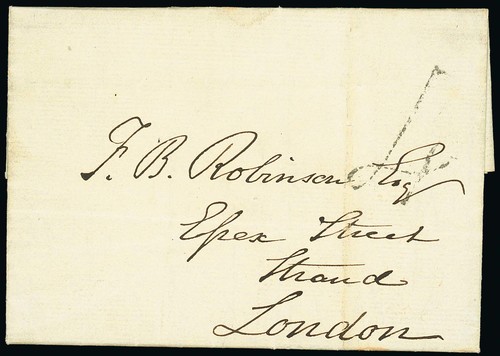 F. B. Robinson Esq
Essex Street
Strand
London